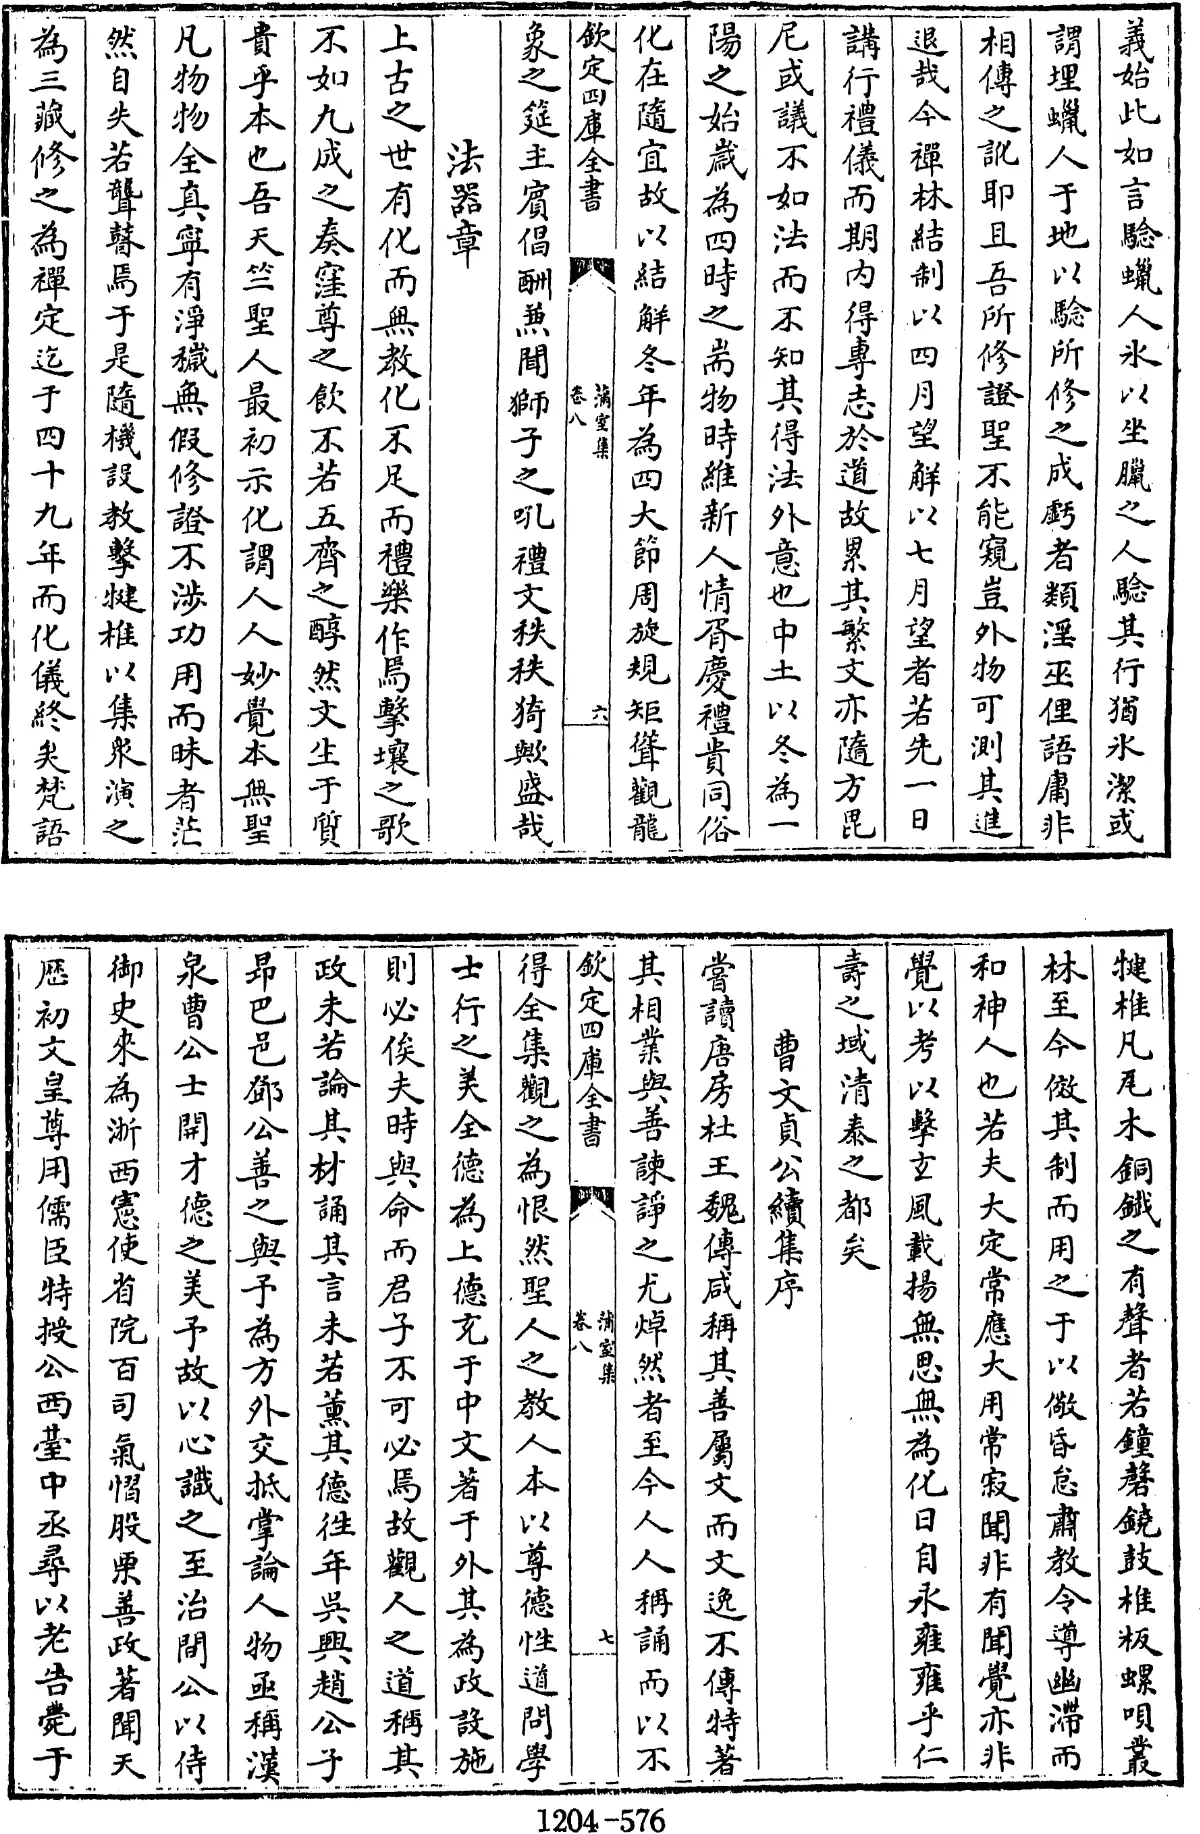 義始此如言驗蠟人氷以坐臘之人驗其行猶氷潔或
謂埋蠟人于地以驗所修之成虧者類淫巫俚語庸非
相傳之訛耶且吾所修證聖不能窺豈外物可測其進
退哉今禪林結制以四月望解以七月望者若先一日
講行禮儀而期内得專志於道故累其繁文亦隨方毘
尼或議不如法而不知其得法外意也中土以冬為一
陽之始歲為四時之耑物時維新人情胥慶禮貴同俗
化在隨宜故以結解冬年為四大節周旋規矩聳觀龍
欽定四庫全書
蒲室集
卷八
六
象之筵主賓倡酬兼聞獅子之吼禮文秩秩猗歟盛哉
法器章
上古之世有化而無教化不足而禮樂作焉擊壤之歌
不如九成之奏窪尊之飲不若五齊之醇然文生于質
貴乎本也吾天竺聖人最初示化謂人人妙覺本無聖
凡物物全真寧有淨穢無假修證不涉功用而昧者茫
然自失若聾瞽焉于是隨機設教擊犍椎以集衆演之
為三藏修之為禪定迄于四十九年而化儀終矣梵語
犍椎凡瓦木銅鐵之有聲者若鐘磬鐃鼓椎板螺唄叢
林至今倣其制而用之于以儆昏怠肅教令導幽滯而
和神人也若夫大定常應大用常寂聞非有聞覺亦非
覺以考以擊玄風載揚無思無為化日自永雍雍乎仁
壽之域清泰之都矣
曹文貞公續集序
嘗讀唐房杜王魏傳咸稱其善屬文而文逸不傳特著
其相業與善諫諍之尤焯然者至今人人稱誦而以不
欽定四庫全書
蒲室集
卷八
七
得全集觀之為恨然聖人之教人本以尊德性道問學
士行之美全德為上德充于中文著于外其為政設施
則必俟夫時與命而君子不可必焉故觀人之道稱其
政未若論其材誦其言未若薰其德往年吳興趙公子
昂巴邑鄧公善之與予為方外交抵掌論人物亟稱漢
泉曹公士開才德之美予故以心識之至治間公以侍
御史來為浙西憲使省院百司氣慴股栗善政著聞天
歷初文皇尊用儒臣特授公西臺中丞尋以老告薨于
1204-576